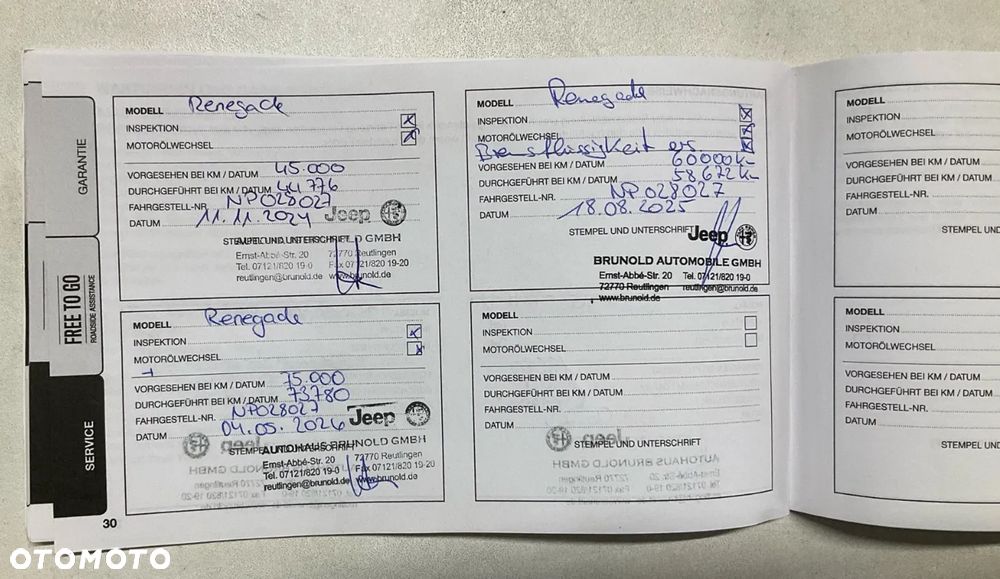 GARANTIE
FREE TO GO
ROADSIDE ASSISTANCE
SERVICE
MODELL Renegade
INSPEKTION
MOTORÖLWECHSEL
VORGESEHEN BEI KM / DATUM 45.000
DURCHGEFÜHRT BEI KM / DATUM 44776
FAHRGESTELL-NR. NP028027
DATUM 11.11.2024 Jeep
STEMPEL UND UNTERSCHRIFT
GMBH
Ernst-Abbé-Str. 20 72770 Reutlingen
Tel. 07121/820 19-0 Fax 07121/820 19-20
reutlingen@brunold.de www.brunold.de
MODELL Renegade
INSPEKTION
MOTORÖLWECHSEL
Bremsflüssigkeit ers.
VORGESEHEN BEI KM / DATUM 60000 Km
DURCHGEFÜHRT BEI KM / DATUM 58.672 Km
FAHRGESTELL-NR. NP028027
DATUM 18.08.2025
STEMPEL UND UNTERSCHRIFT Jeep
BRUNOLD AUTOMOBILE GMBH
Ernst-Abbé-Str. 20 Tel. 07121/820 19-0
72770 Reutlingen reutlingen@brunold.de
www.brunold.de
MODELL Renegade
INSPEKTION
MOTORÖLWECHSEL
VORGESEHEN BEI KM / DATUM 75.000
DURCHGEFÜHRT BEI KM / DATUM 73780
FAHRGESTELL-NR. NP028027
DATUM 04.05.2026 Jeep
AUTOHAUS BRUNOLD GMBH
Ernst-Abbé-Str. 20 72770 Reutlingen
Tel. 07121/820 19-0 Fax 07121/820 19-20
reutlingen@brunold.de www.brunold.de
MODELL
INSPEKTION
MOTORÖLWECHSEL
VORGESEHEN BEI KM / DATUM
DURCHGEFÜHRT BEI KM / DATUM
FAHRGESTELL-NR.
DATUM
STEMPEL UND UNTERSCHRIFT
30
MODELL
INSPEKTION
MOTORÖLWECHSEL
VORGESEHEN BEI K
DURCHGEFÜHRT BE
FAHRGESTELL-NR.
DATUM
STEMPEL UND
MODELL
INSPEKTION
MOTORÖLWECHSEL
VORGESEHEN BEI K
DURCHGEFÜHRT BE
FAHRGESTELL-NR.
DATUM
STEMPEL UND
OTOMOTO